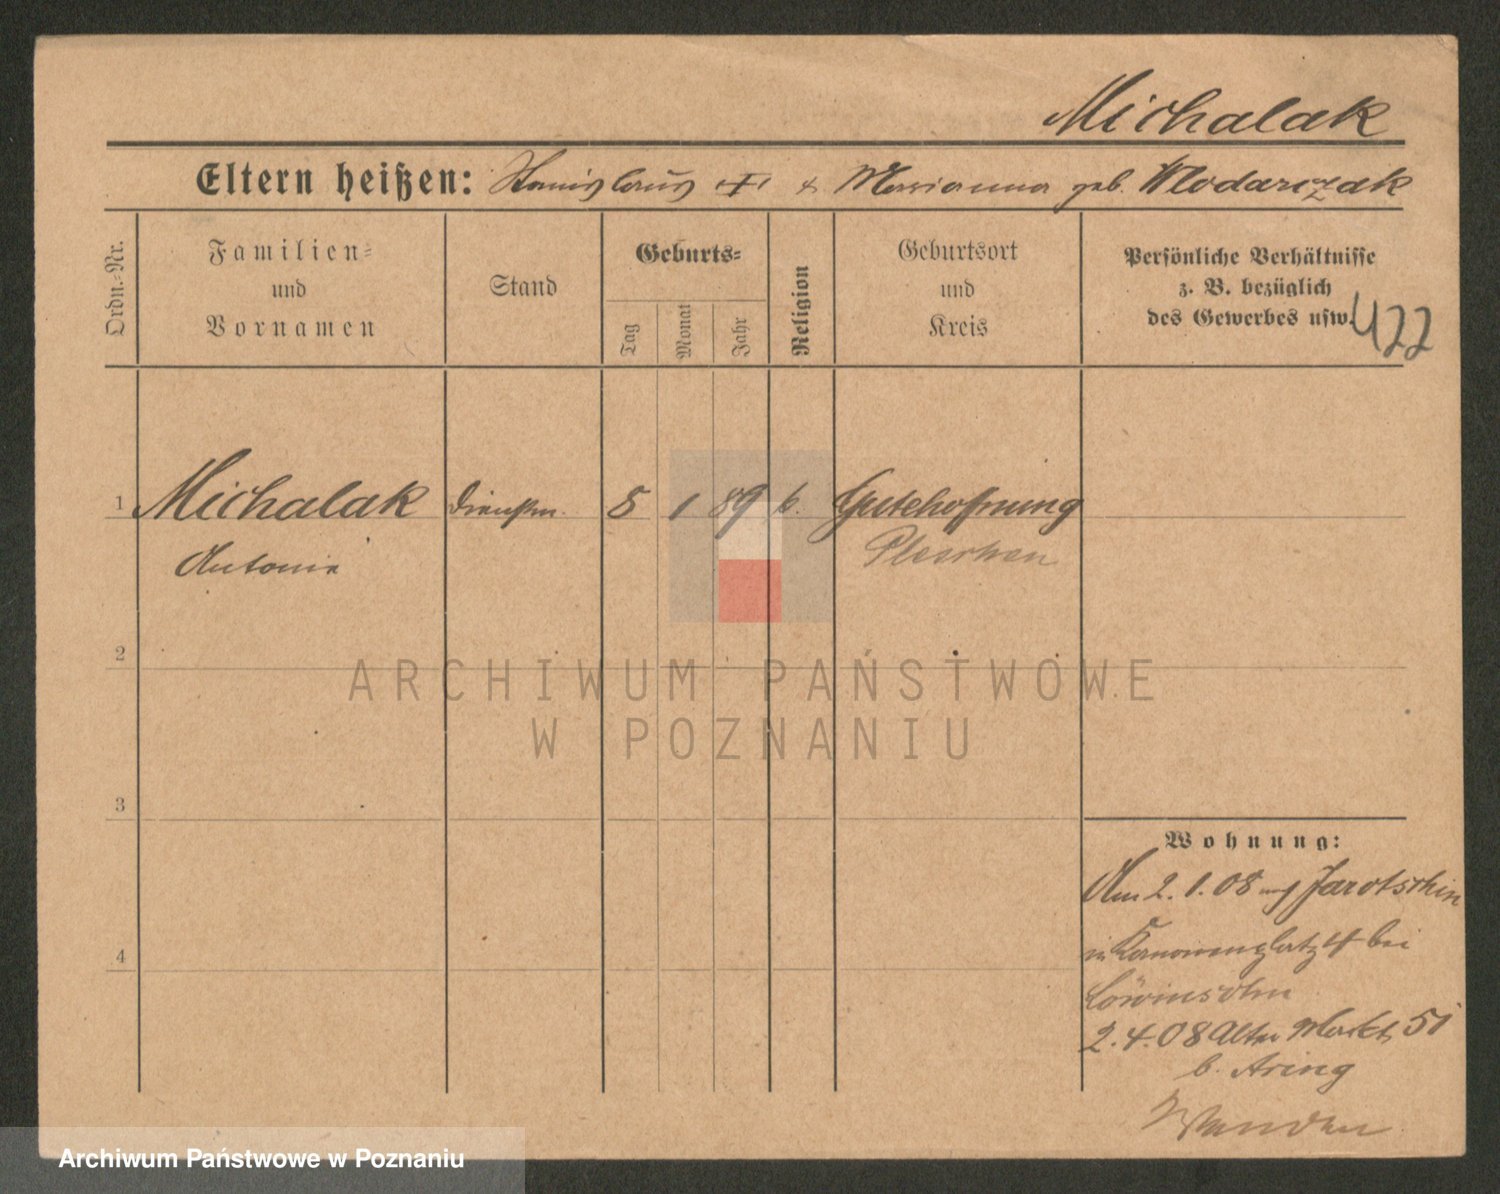 Michalak
Eltern heißen: Stanislaus & Marianna geb. Wlodarczak
Ordn.-Nr.
Familien-
und
Vornamen
Stand
Geburts-
Tag
Monat
Jahr
Religion
Geburtsort
und
Kreis
Persönliche Verhältnisse
z. B. bezüglich
des Gewerbes usw.
422
1 Michalak Dienstm. 8 1 89 k. Gutehoffnung
Antonia Pleschen
2
ARCHIWUM PAŃSTWOWE
W POZNANIU
3
Wohnung:
Am 2.1.08 Jarotschin
4
in Kanonenplatz 4 bei
Löwinsohn
2.4.08 Alter Markt 51
b. Aring
Archiwum Państwowe w Poznaniu